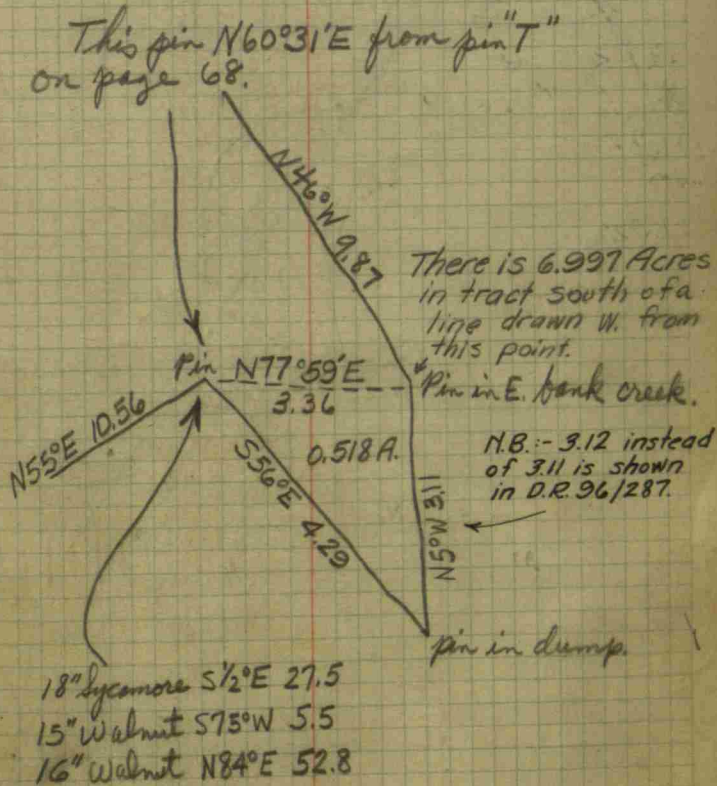 This pin N60°31'E from pin "T"
on page 68.
N46°W 9.87
There is 6.997 Acres
in tract south of a
line drawn W. from
this point.
Pin N77°59'E
3.36
Pin in E. bank creek.
N55°E 10.56
0.518A.
S56°E 4.29
N.B.:- 3.12 instead
of 3.11 is shown
in D.R. 96/287.
N5°W 3.11
pin in dump.
18" Sycamore S1/2°E 27.5
15" Walnut S75°W 5.5
16" Walnut N84°E 52.8